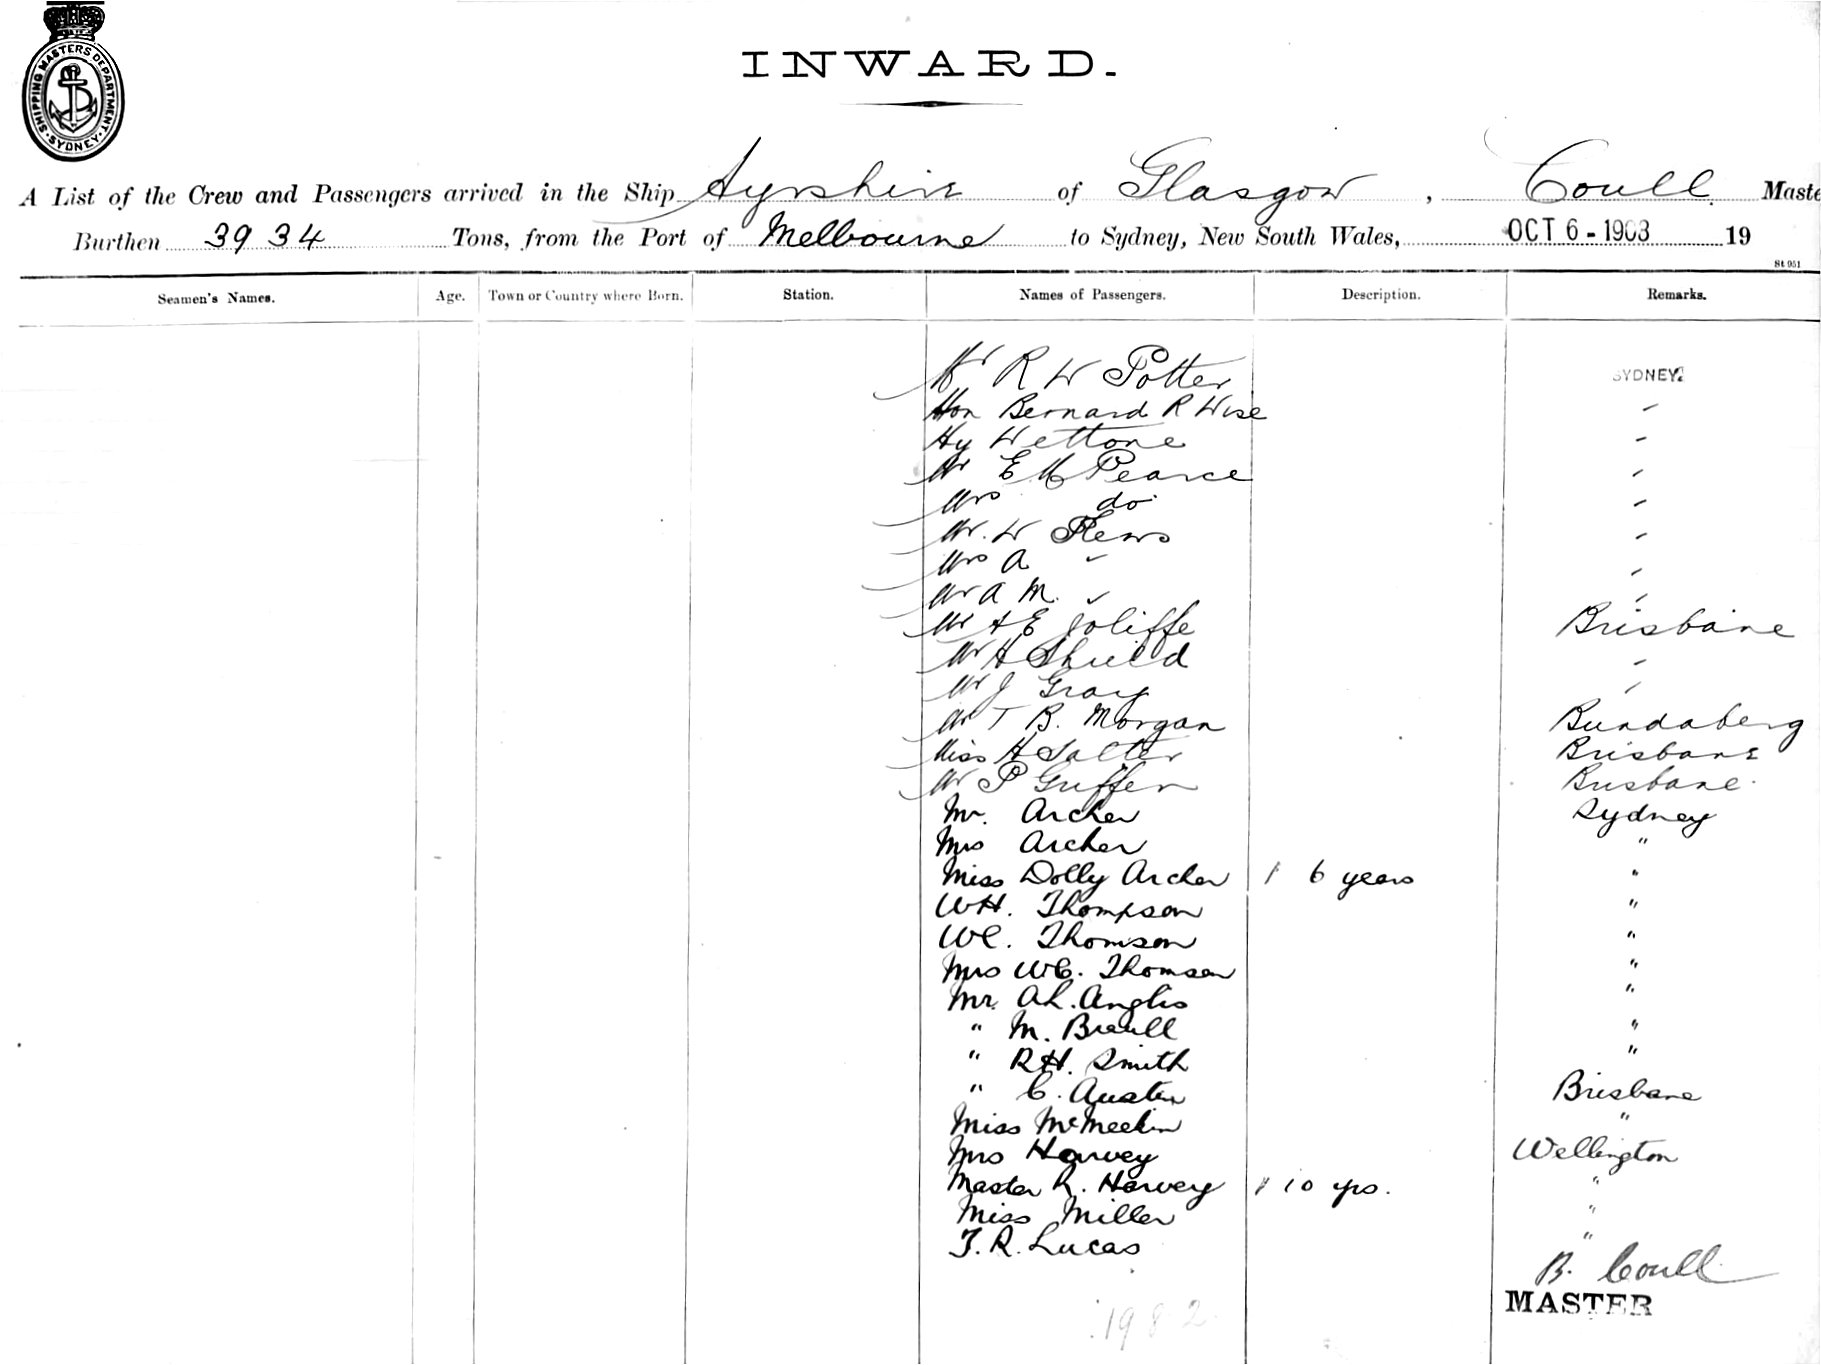 SHIPPING MASTERS DEPARTMENT. SYDNEY
INWARD.
A List of the Crew and Passengers arrived in the Ship Ayrshire of Glasgow, Coull Maste
Burthen 3934 Tons, from the Port of Melbourne to Sydney, New South Wales, OCT 6 - 1903 19
St 951
Seamen's Names. Age. Town or Country where Born. Station. Names of Passengers. Description. Remarks.
Mr R W Potter SYDNEY.
Hon Bernard R Wise "
Hy Wettone "
Mr E M Pearce "
Mrs do "
Mr. W Plews "
Mrs A " "
Mr A M. " "
Mr A E Joliffe Brisbane
Mr H Shield "
Mr J Gray "
Mr T B. Morgan Bundaberg
Miss H Salter Brisbane
Mr P Griffen Brisbane.
Mr. Archer Sydney
Mrs Archer "
Miss Dolly Archer 6 years "
WH. Thompson "
WC. Thomson "
Mrs WC. Thomson "
Mr. A.L. Anglis "
" M. "
" RH. Smith "
" C. Austin Brisbane
Miss McMeekin "
Mrs Harvey Wellington
Master R. Harvey 10 yrs. "
Miss Miller "
T. R. Lucas "
B. Coull
MASTER
1982